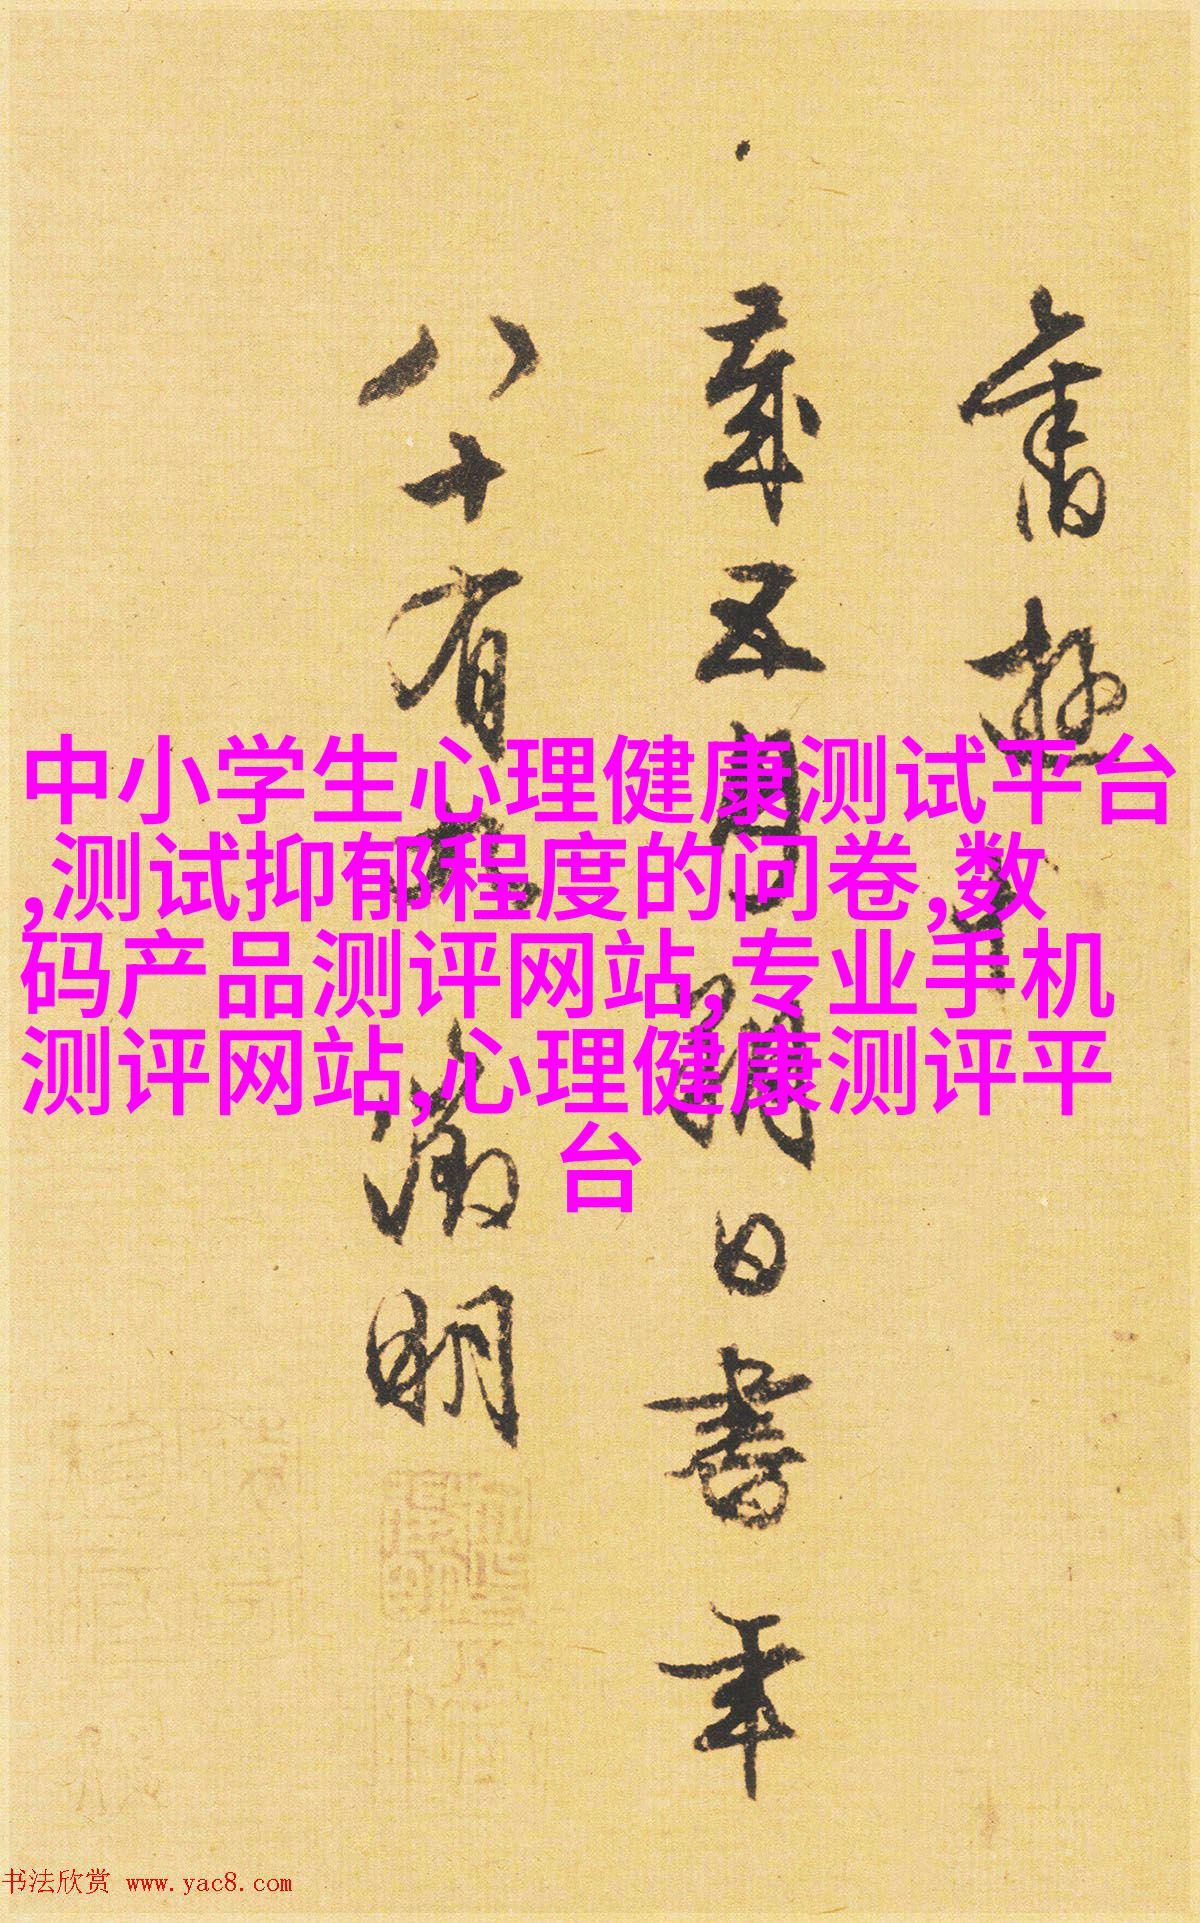 舊遊
歲五月朔日書年
八十有 徵明
中小学生心理健康测试平台
,测试抑郁程度的问卷,数
码产品测评网站,专业手机
测评网站,心理健康测评平
台
书法欣赏 www.yac8.com